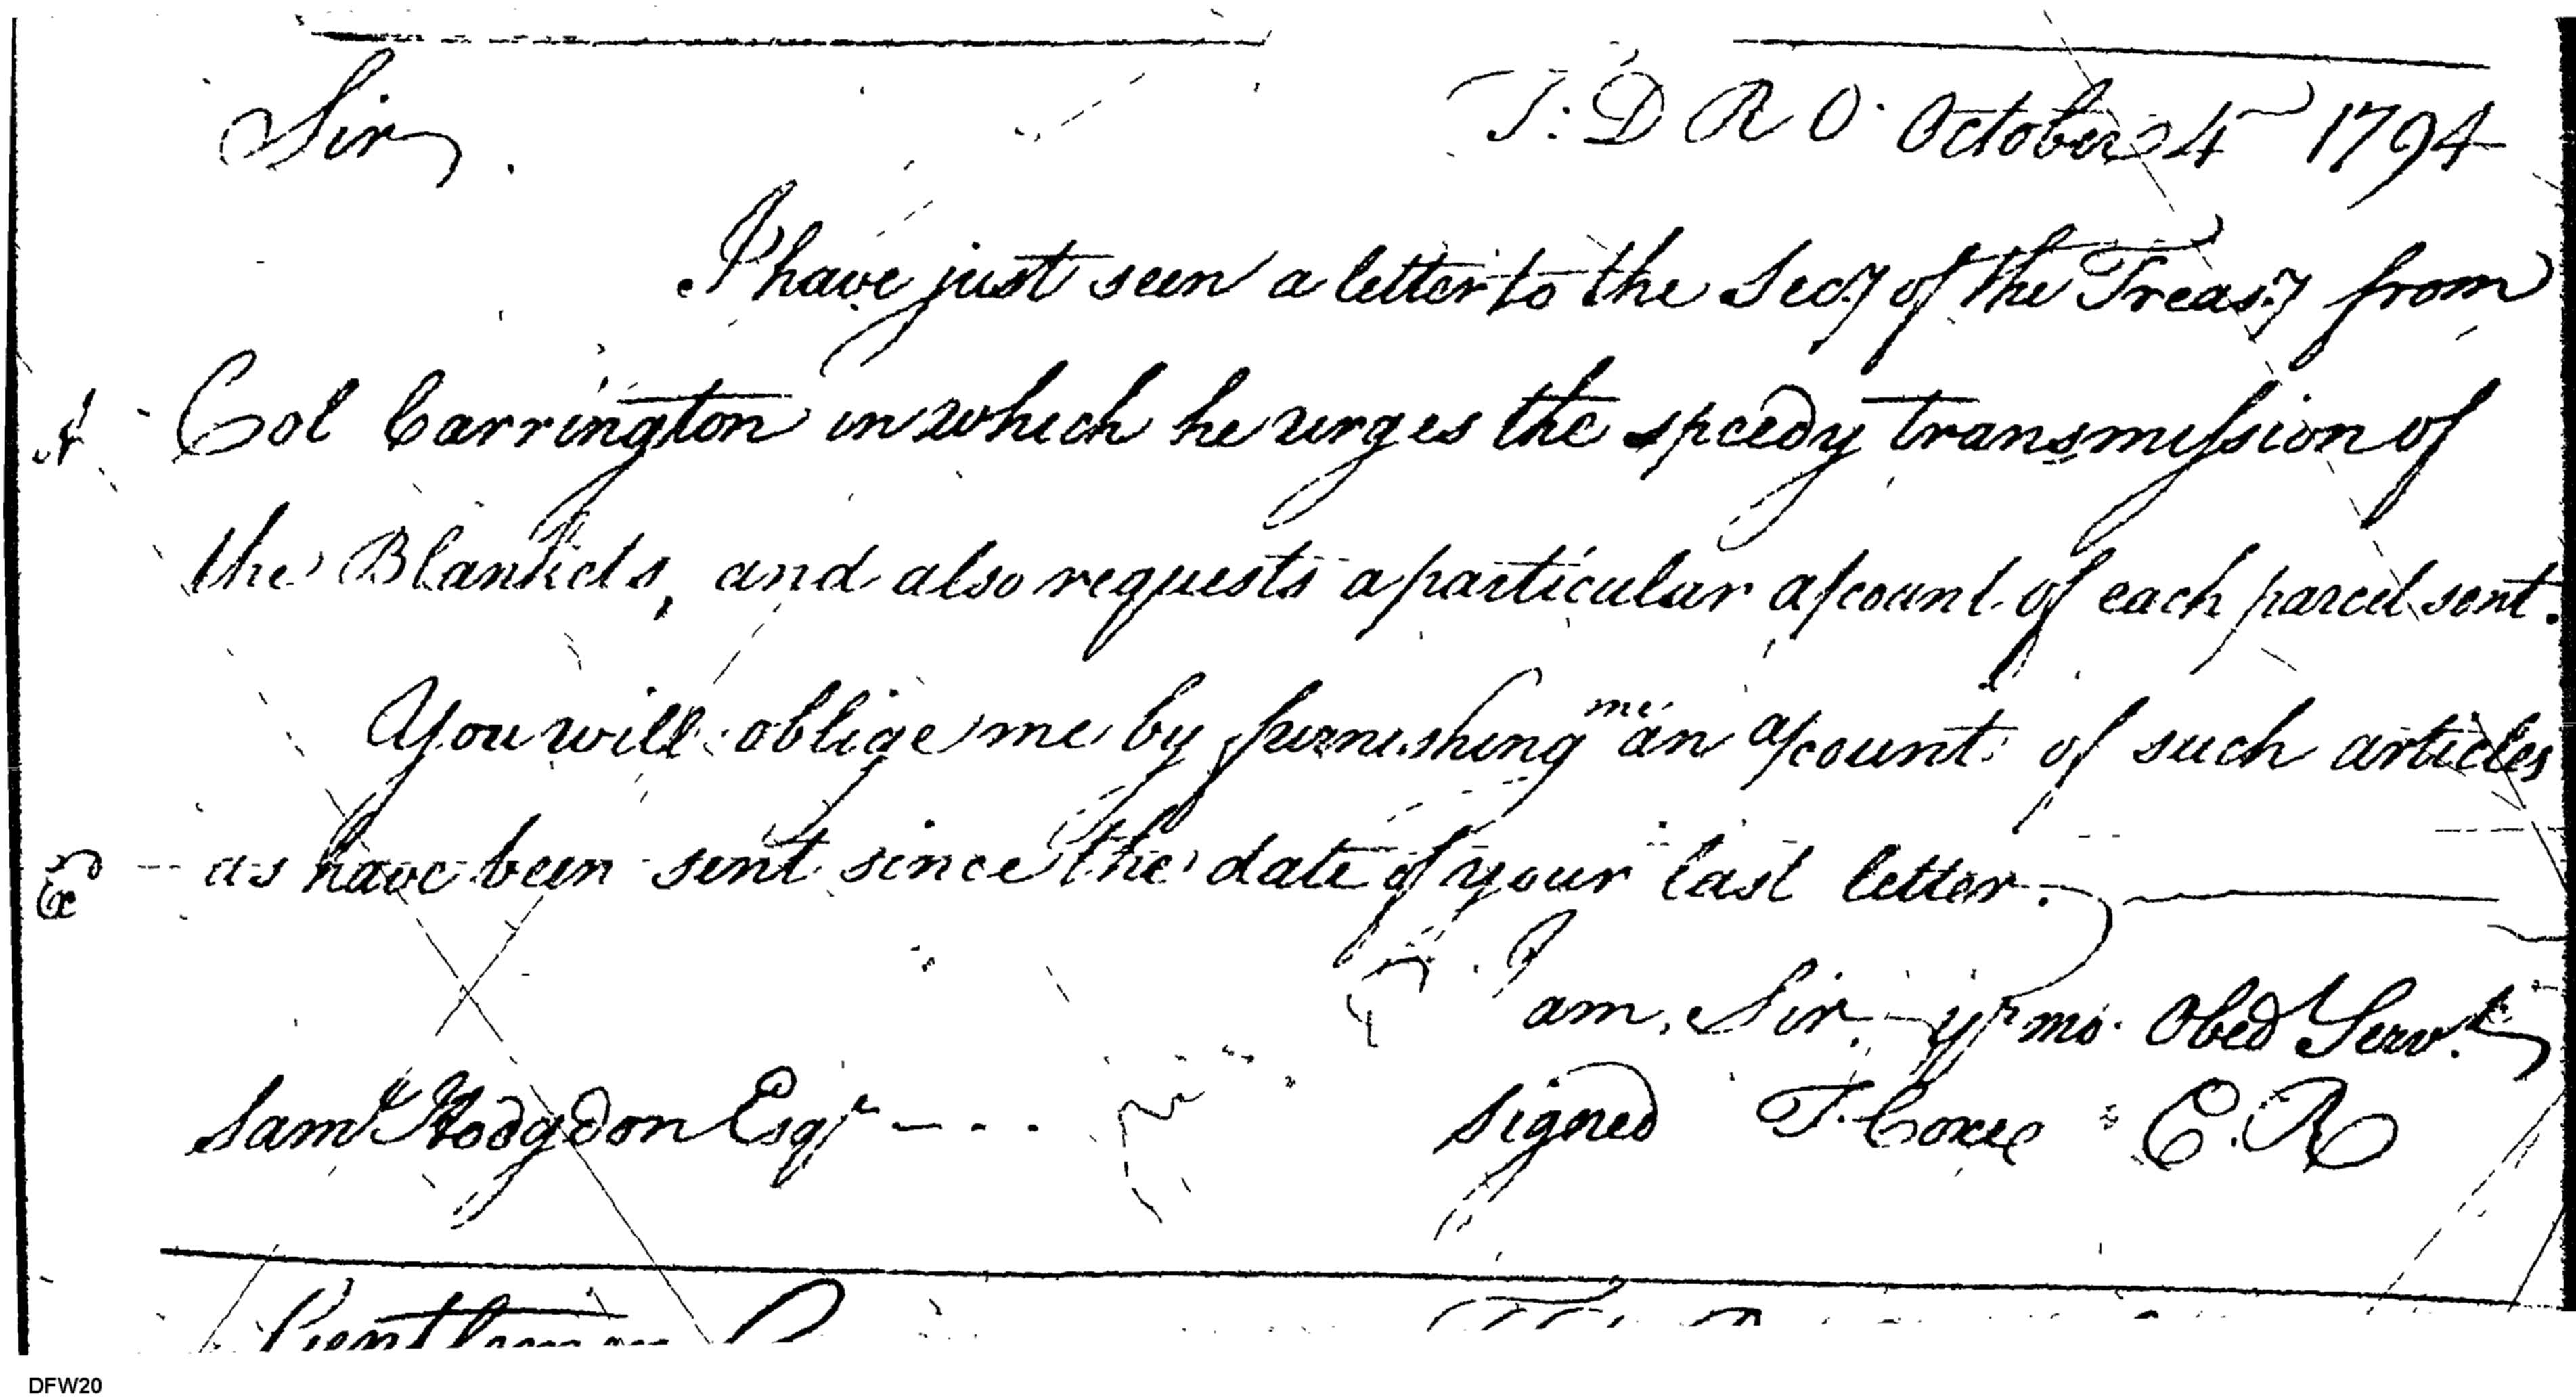 Sir, T: D R O. October 4 1794
I have just seen a letter to the Secy of the Treasy from
Col Carrington in which he urges the speedy transmission of
the Blankets, and also requests a particular account of each parcel sent.
You will oblige me by furnishing me an account of such articles
as have been sent since the date of your last letter.
I
am, Sir, yr mo. Obed Servt
Saml Hodgdon Esqr signed T. Coxe C. R
Gentlemen
DFW20